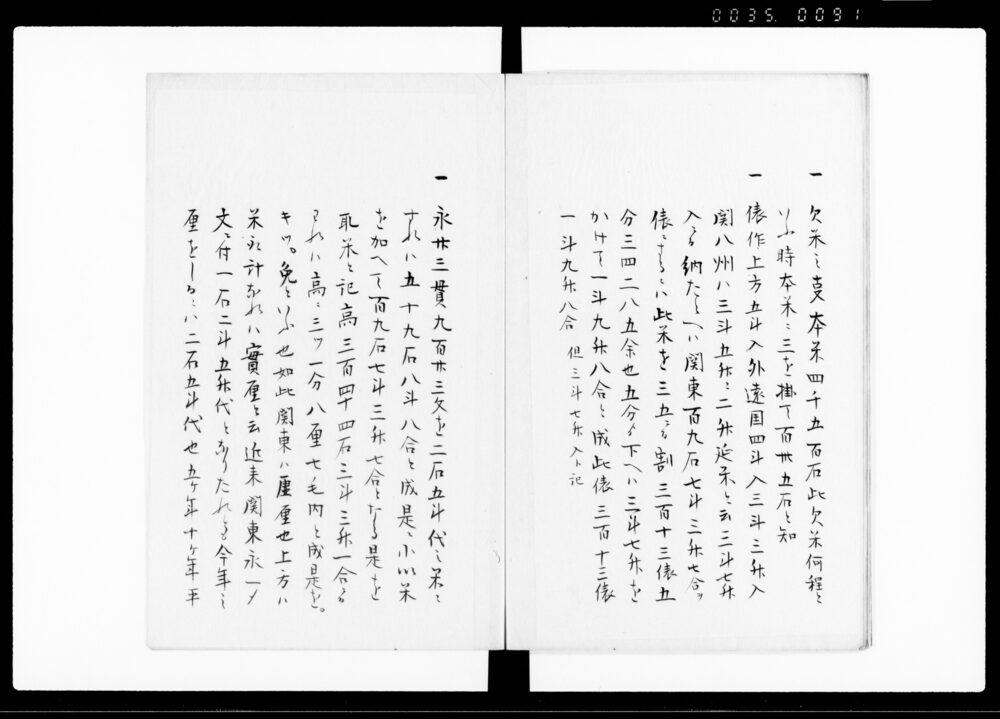 0035. 0091
一 欠米之支本米四千五百石此欠米何程と
いふ時本米ニ三を掛て百卅五石と知
一 俵作上方五斗入外遠国四斗入三斗三升入
関八州ハ三斗五升ニ二升延米と云三斗七升
入る納たとへハ関東百九石七斗三升七合ヲ
俵にするにハ此米を三五にて割三百十三俵五
分三四二八五余也五分より下へハ三斗七升を
かけて一斗九升八合と成此俵三百十三俵
一斗九升八合 但三斗七升入ト記
一 永廿三貫九百廿三文を二石五斗代之米に
すれハ五十九石八斗八合と成是ニ小以米
を加へて百九石七斗三升七合となる是を
取米と記高三百四十四石三斗三升一合にて
われハ高ニ三ツ一分八厘七毛内と成是を
キツ。免といふ也如此関東ハ厘厘也上方ハ
米永計なれハ實厘と云近来関東永一〆
文ニ付一石二斗五升代となりたれとも今年之
厘をしるにハ二石五斗代也五ケ年十ケ年平